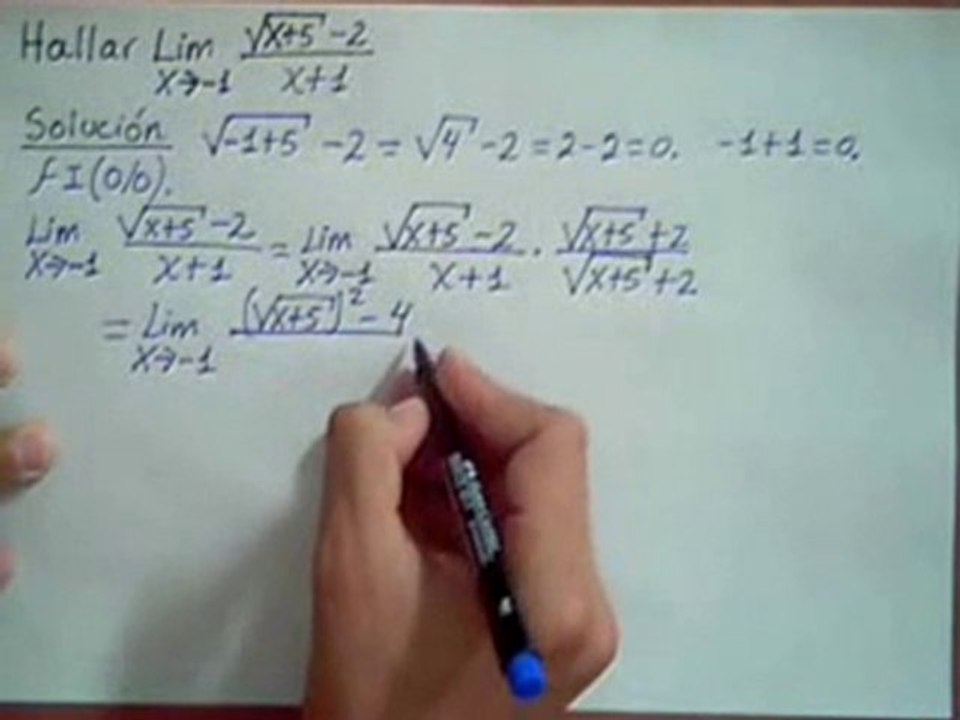 Hallar Lim x→-1 (√(x+5) -2)/(x+1)
Solución √(-1+5) -2 = √4 -2 = 2-2=0. -1+1=0.
fI(0/0).
Lim x→-1 (√(x+5) -2)/(x+1) = Lim x→-1 (√(x+5) -2)/(x+1) · (√(x+5) +2)/(√(x+5) +2)
= Lim x→-1 (√(x+5))² - 4